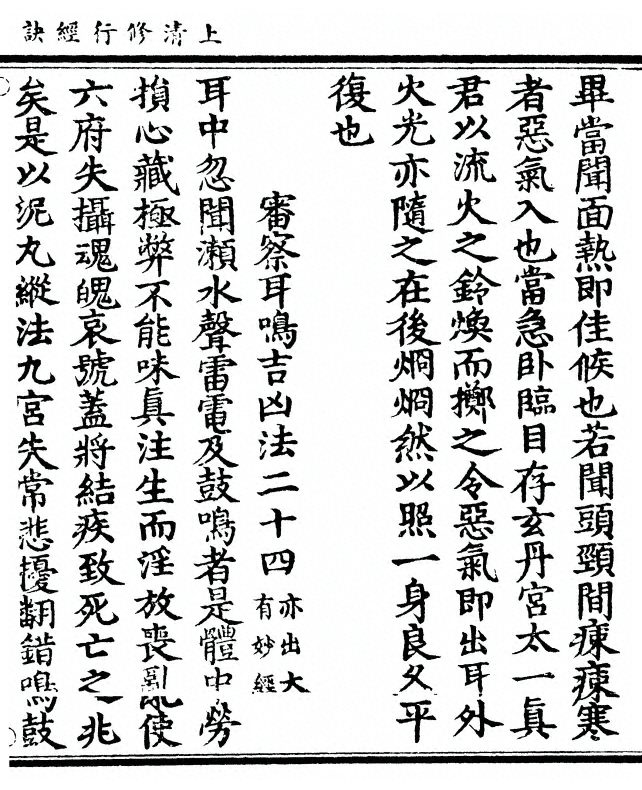 上清修行經訣
畢當聞面熱即佳候也若聞頭頸間㾕㾕寒
者惡氣入也當急卧臨目存玄丹宮太一真
君以流火之鈴煥而擲之令惡氣即出耳外
火光亦隨之在後烱烱然以照一身良久平
復也
審察耳鳴吉凶法二十四亦出大有妙經
耳中忽聞瀨水聲雷電及鼓鳴者是體中勞
損心藏極弊不能味真注生而淫放喪亂使
六府失攝魂魄哀號蓋將結疾致死亡之兆
矣是以泥丸縱法九宮失常悲擾翻錯鳴鼓